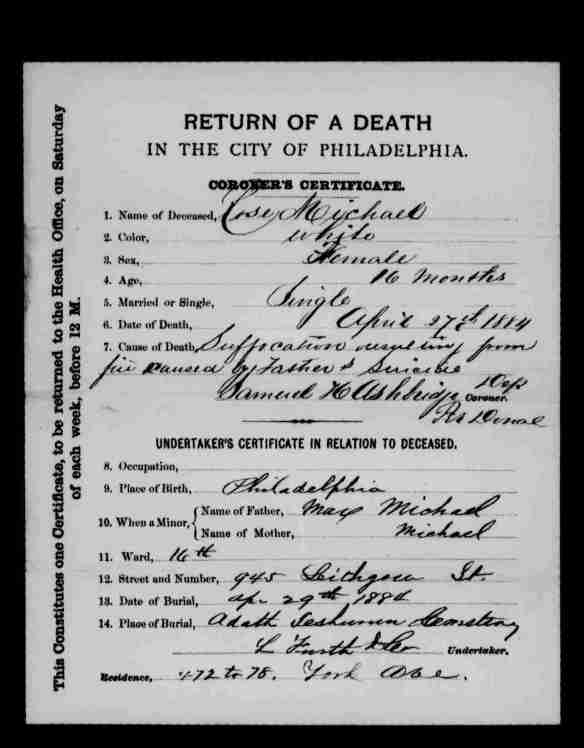 RETURN OF A DEATH
IN THE CITY OF PHILADELPHIA.
CORONER'S CERTIFICATE.
1. Name of Deceased, Rose Michael
2. Color, White
3. Sex, Female
4. Age, 16 Months
5. Married or Single, Single
6. Date of Death, April 27th 1884
7. Cause of Death, Suffocation resulting from
fire caused by Father's Suicide
Samuel H Ashbridge Dep Coroner.
UNDERTAKER'S CERTIFICATE IN RELATION TO DECEASED.
8. Occupation,
9. Place of Birth, Philadelphia
10. When a Minor, { Name of Father, Max Michael
Name of Mother, Michael
11. Ward, 16th
12. Street and Number, 945 Leithgow St.
13. Date of Burial, Apr 29th 1884
14. Place of Burial, Adath Jeshurun Cemetery
Undertaker.
Residence, 472 to 78. York Ave.
This Constitutes one Certificate, to be returned to the Health Office, on Saturday
of each week, before 12 M.